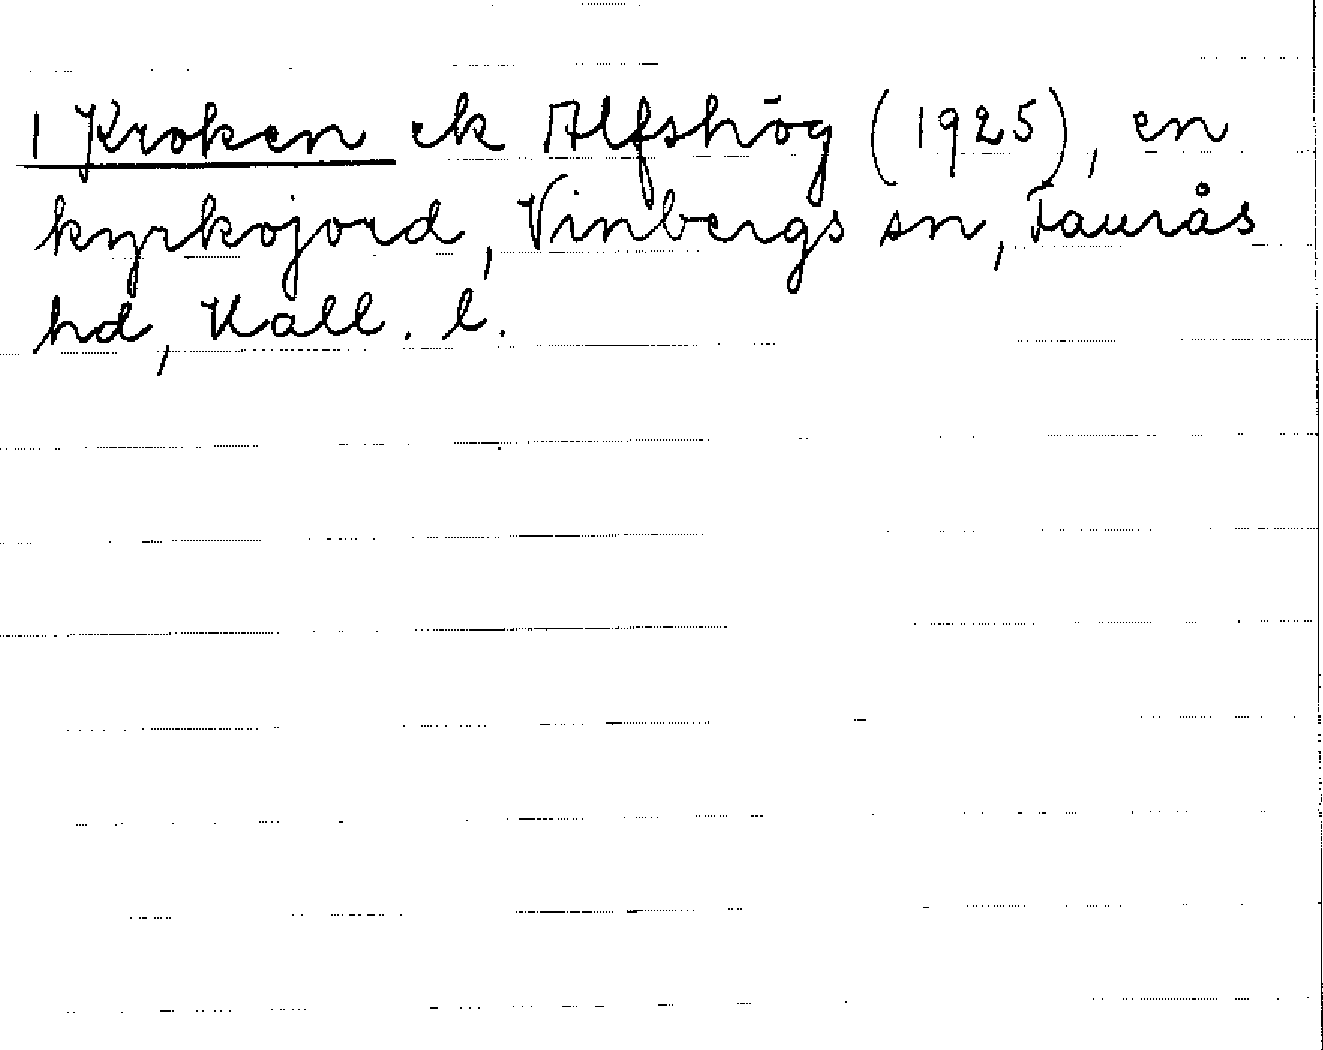 1 Kroken ek Alfshög (1925), en
kyrkojord, Vinbergs sn, Faurås
hd, Hall. l.